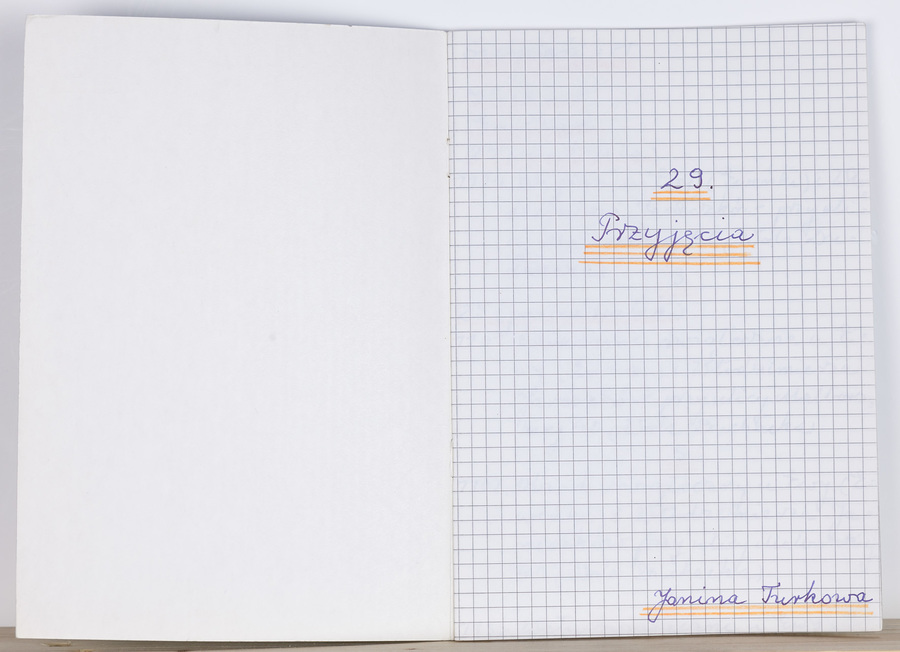 29.
Przyjęcia
Janina Turkowa